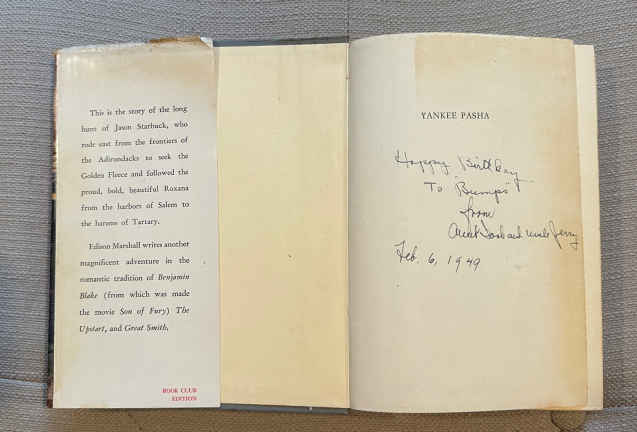 This is the story of the long
hunt of Jason Starbuck, who
rode east from the frontiers of
the Adirondacks to seek the
Golden Fleece and followed the
proud, bold, beautiful Roxana
from the harbors of Salem to
the harems of Tartary.
Edison Marshall writes another
magnificent adventure in the
romantic tradition of Benjamin
Blake (from which was made
the movie Son of Fury) The
Upstart, and Great Smith.
BOOK CLUB
EDITION
YANKEE PASHA
Happy Birthday
To "Bumps"
from
Aunt and Uncle Jerry
Feb. 6, 1949